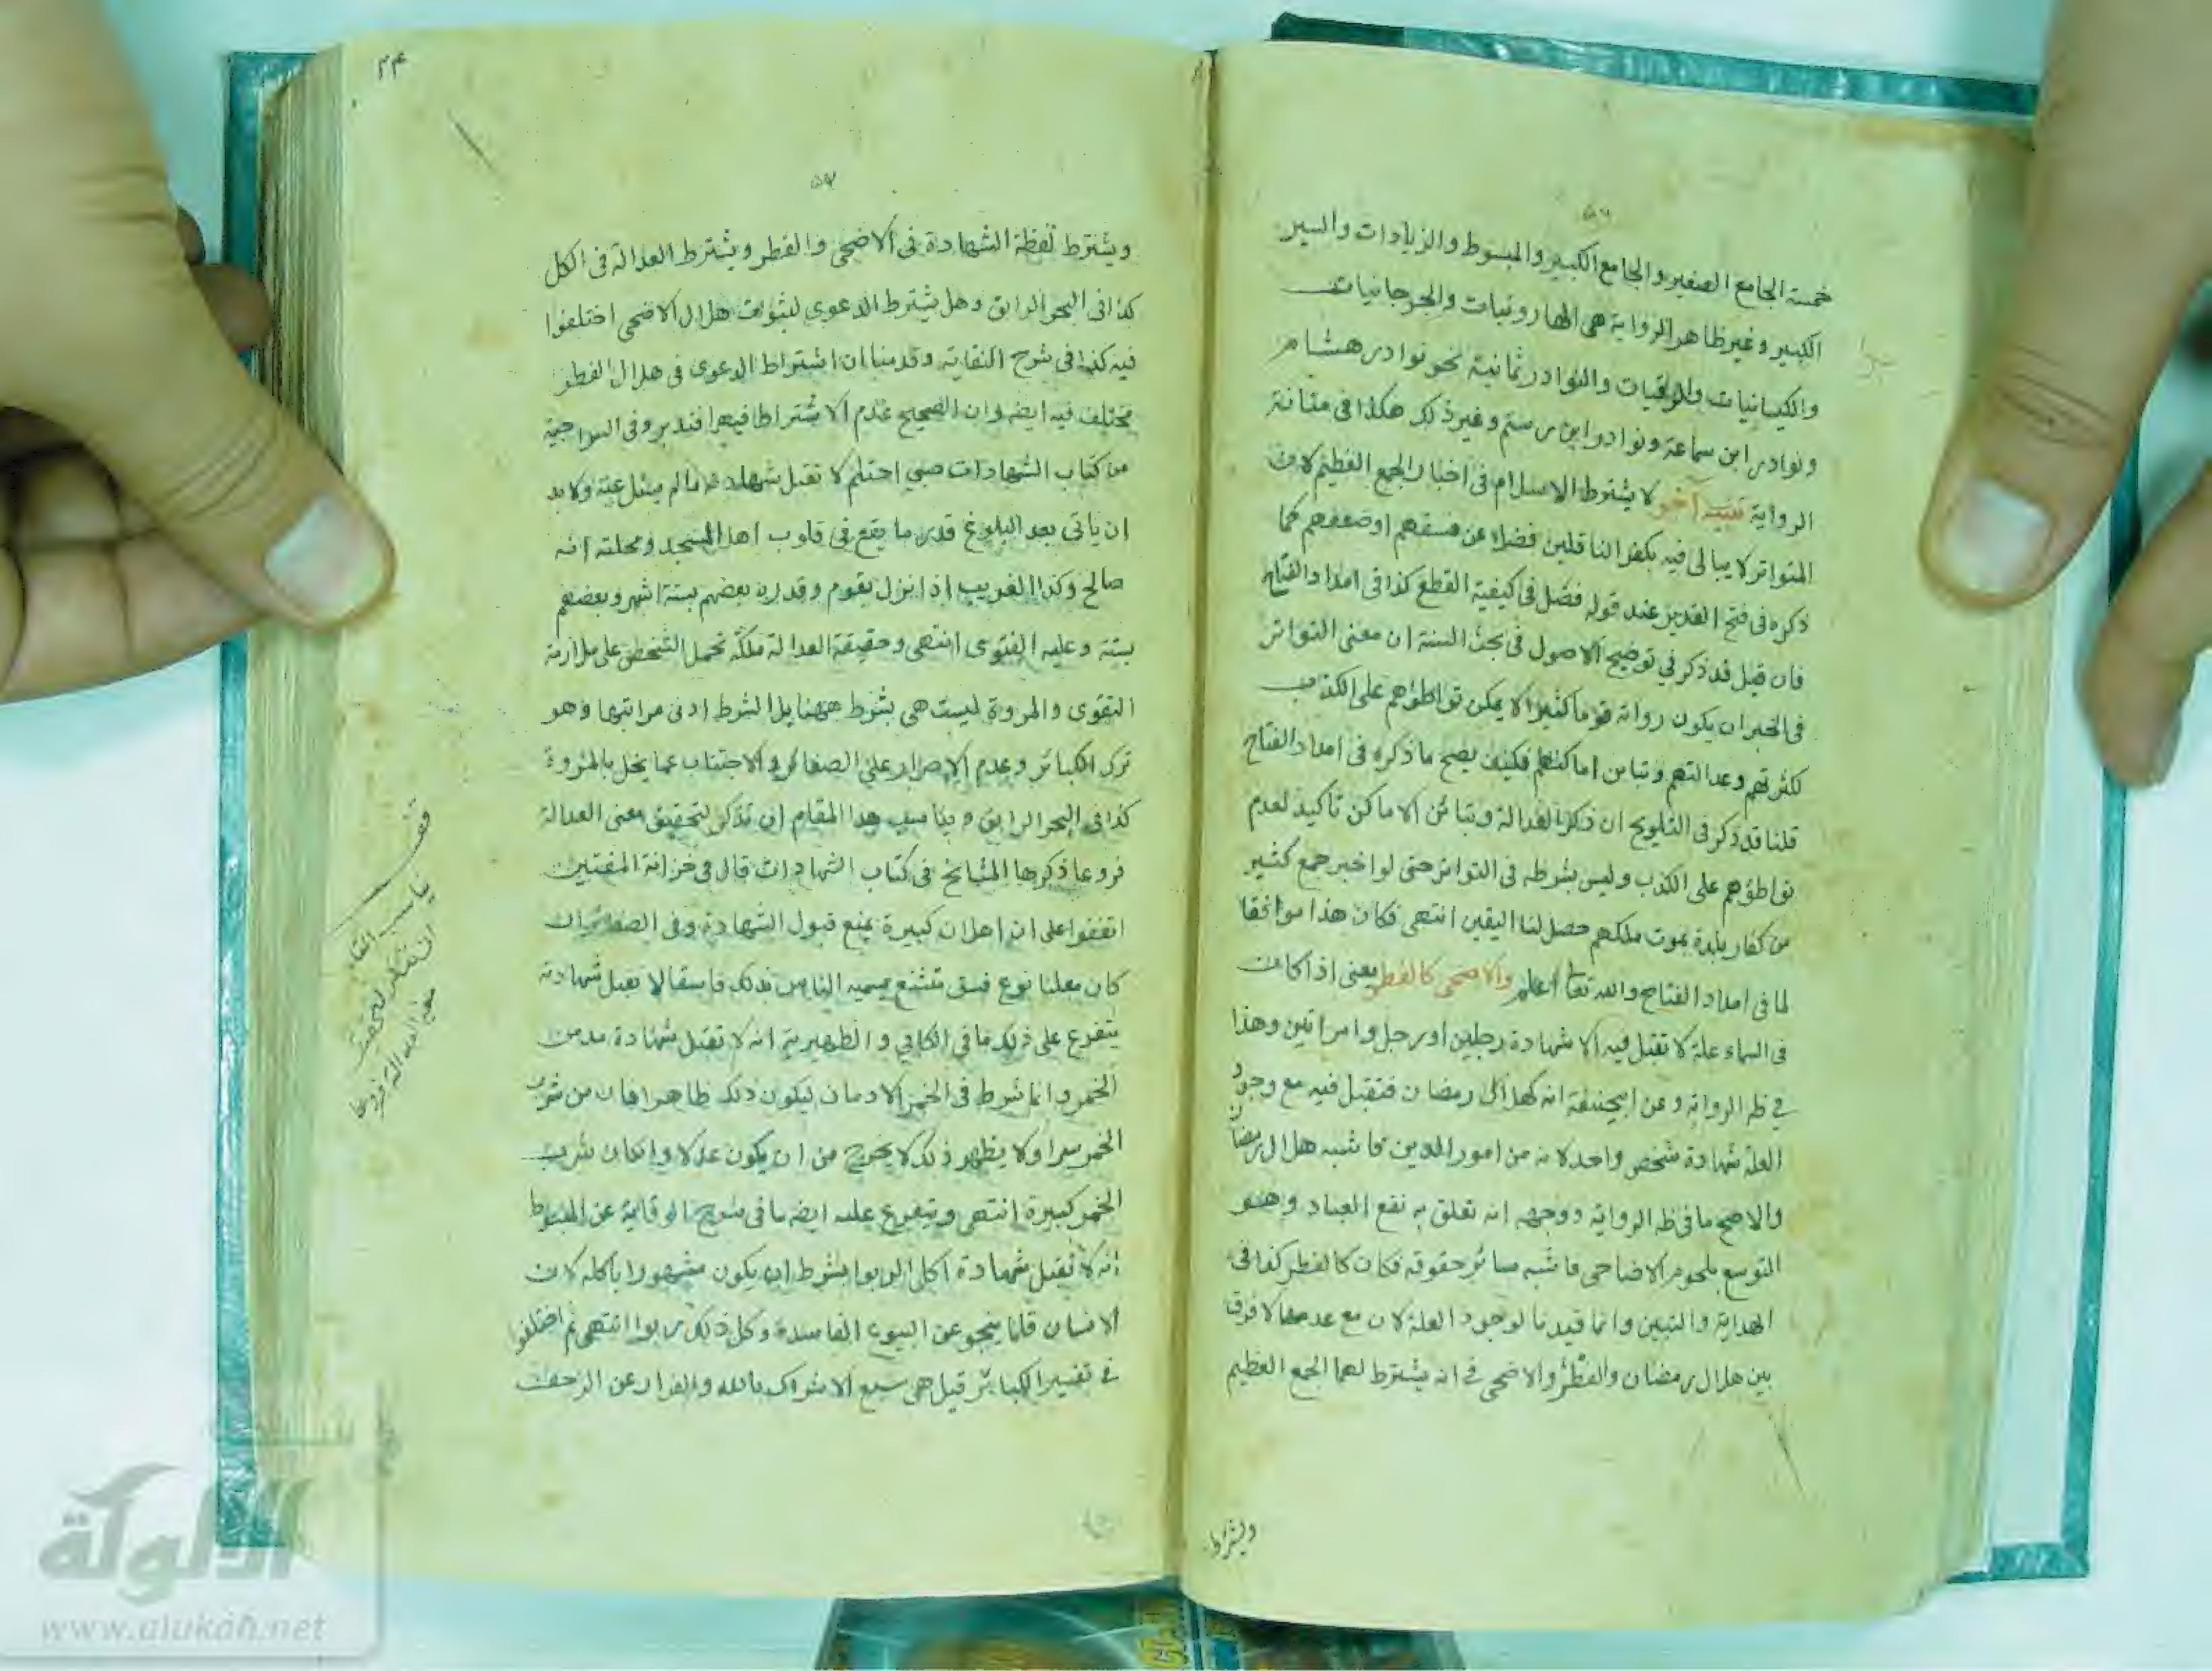 ٥٦
خمسة الجامع الصغير والجامع الكبير والمبسوط والزيادات والسير
الكبير وغير ظاهر الرواية هي الهارونيات والجرجانيات
والكيسانيات والرقيات والنوادر ثمانية نحو نوادر هشام
ونوادر ابن سماعة ونوادر ابن رستم وغير ذلك هكذا في متانة
الرواية تنبيه آخر لا يشترط الاسلام في اخبار الجمع العظيم لان
المتواتر لا يبالى فيه بكفر الناقلين فضلا عن فسقهم اوضعفهم كما
ذكره في فتح القدير عند قوله فصل في كيفية القطع كذا في امداد الفتاح
فان قيل قد ذكر في توضيح الاصول في بحث السنة ان معنى التواتر
في الخبر ان يكون رواته قوما كثيرا لا يمكن تواطؤهم على الكذب
لكثرتهم وعدالتهم وتباين اماكنهم فكيف يصح ما ذكره في امداد الفتاح
قلنا قد ذكر في التلويح ان ذكر العدالة وتبائن الاماكن تأكيد لعدم
تواطؤهم على الكذب وليس بشرط في التواتر حتى لو اخبر جمع كثير
من كفار بلدة بموت ملكهم حصل لنا اليقين انتهى فكان هذا موافقا
لما في امداد الفتاح والله تعا اعلم والاضحى كالفطر يعني اذا كانت
في السماء علة لا تقبل فيه الا شهادة رجلين او رجل وامراتين وهذا
في ظه الرواية وعن ابيحنيفة انه كهلال رمضان فتقبل فيه مع وجود
العلة شهادة شخص واحد لانه من امور الدين فاشبه هلال رمضان
والاصح ما في ظه الرواية ووجهه انه تعلق به نفع العباد وهو
التوسع بلحوم الاضاحي فاشبه سائر حقوقه فكان كالفطر كذا في
الهداية والتبيين وانما قيدنا لوجود العلة لان مع عدمها لا فرق
بين هلال رمضان والفطر والاضحى في انه يشترط لهما الجمع العظيم
ويشترط
٢٤
٥٧
ويشترط لفظة الشهادة في الاضحى والفطر ويشترط العدالة في الكل
كذا في البحر الرايق وهل يشترط الدعوى لثبوت هلال الاضحى اختلفوا
فيه كذا في شرح النقاية وقدمنا ان اشتراط الدعوى في هلال الفطر
مختلف فيه ايضه وان الصحيح عدم الاشتراط فيهما فتدبر وفي السراجية
من كتاب الشهادات صبي احتلم لا تقبل شهادته ما لم يسئل عنه ولا بد
ان ياتي بعد البلوغ قدر ما يقع في قلوب اهل المسجد ومحلته انه
صالح وكذا الغريب اذا نزل بقوم وقدره بعضهم بستة اشهر وبعضهم
بسنة وعليه الفتوى انتهى وحقيقة العدالة ملكة تحمل الشخص على ملازمة
التقوى والمروة ليست هي بشرط ههنا بل الشرط ادنى مراتبها وهو
ترك الكبائر وعدم الاصرار على الصغائر والاجتناب عما يخل بالمروة
كذا في البحر الرايق ويناسب هذا المقام ان نذكر لتحقيق معنى العدالة
فروعا ذكرها المشايخ في كتاب الشهادات قال في خزانة المفتيين
اتفقوا على ان اعلان كبيرة يمنع قبول الشهادة وفي الصغائر ان
كان معلنا نوع فسق مستشنع يسميه الناس بذلك فاسقا لا تقبل شهادته
يتفرع على ذلك ما في الكافي والظهيرية انه لا تقبل شهادة مدمن
الخمر وانما شرط في الخمر الادمان ليكون ذلك ظاهرا فان من شرب
الخمر سرا ولا يظهر ذلك لا يخرج من ان يكون عدلا وان كان شرب
الخمر كبيرة انتهى ويتفرع عليه ايضه ما في شرح الوقاية عن المبسوط
انه لا تقبل شهادة آكل الربوا بشرط ان يكون مشهورا باكله لان
الانسان قلما ينجو عن البيوع الفاسدة وكل ذلك ربوا انتهى ثم اختلفوا
في تفسير الكبائر قيل هي سبع الاشراك بالله والفرار عن الزحف
قف
يناسب المقام
ان نذكر لتحقيق
معنى العدالة فروعا
الألوكة
www.alukah.net